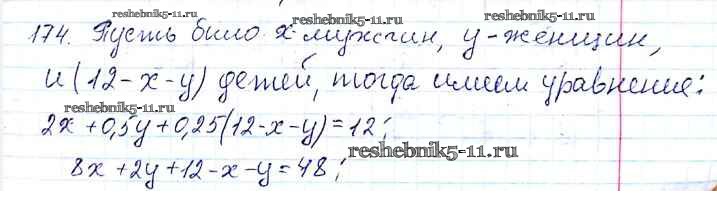 reshebnik5-11.ru
174. Пусть было x мужчин, y - женщин,
reshebnik5-11.ru
и (12-x-y) детей, тогда имеем уравнение:
2x+0,5y+0,25(12-x-y)=12;
8x+2y+12-x-y=48;
reshebnik5-11.ru